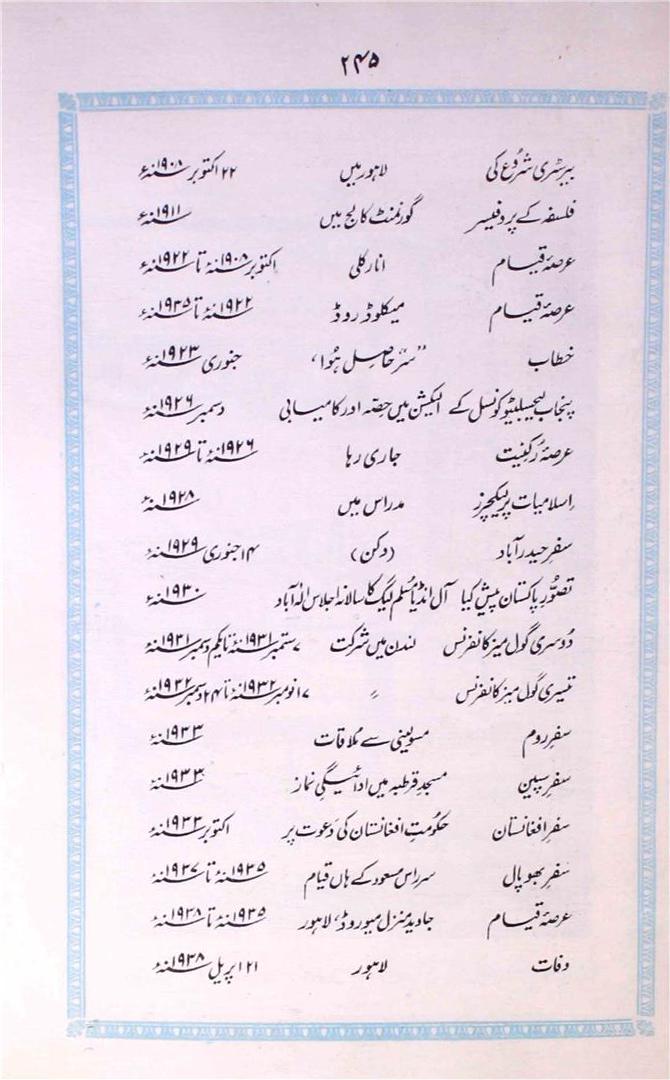 ۲۴۵
بیرسٹری شروع کی لاہور میں ۲۲ اکتوبر ۱۹۰۸ء
فلسفہ کے پروفیسر گورنمنٹ کالج میں ۱۹۱۱ء
عرصۂ قیام انار کلی اکتوبر ۱۹۰۸ء تا ۱۹۲۲ء
عرصۂ قیام میکلوڈ روڈ ۱۹۲۲ء تا ۱۹۳۵ء
خطاب "سر" حاصل ہُوا، جنوری ۱۹۲۳ء
پنجاب لیجسلیٹو کونسل کے الیکشن میں حصّہ اور کامیابی دسمبر ۱۹۲۶ء
عرصۂ رُکنیت جاری رہا ۱۹۲۶ء تا ۱۹۲۹ء
اسلامیات پر لیکچرز مدراس میں ۱۹۲۸ء
سفرِ حیدرآباد (دکن) ۱۴ جنوری ۱۹۲۹ء
تصوّرِ پاکستان پیش کیا آل انڈیا مُسلم لیگ کا سالانہ اجلاس الٰہ آباد ۱۹۳۰ء
دُوسری گول میز کانفرنس لندن میں شرکت ۷ ستمبر ۱۹۳۱ء تا یکم دسمبر ۱۹۳۱ء
تیسری گول میز کانفرنس " ۱۷ نومبر ۱۹۳۲ء تا ۲۴ دسمبر ۱۹۳۲ء
سفرِ روم مسولینی سے مُلاقات ۱۹۳۳ء
سفرِ سپین مسجدِ قرطبہ میں ادائیگیِ نماز ۱۹۳۳ء
سفرِ افغانستان حکومتِ افغانستان کی دَعوت پر اکتوبر ۱۹۳۳ء
سفرِ بھوپال سر راس مسعود کے ہاں قیام ۱۹۳۵ء تا ۱۹۳۷ء
عرصۂ قیام جاوید منزل میو روڈ، لاہور ۱۹۳۵ء تا ۱۹۳۸ء
وفات لاہور ۲۱ اپریل ۱۹۳۸ء